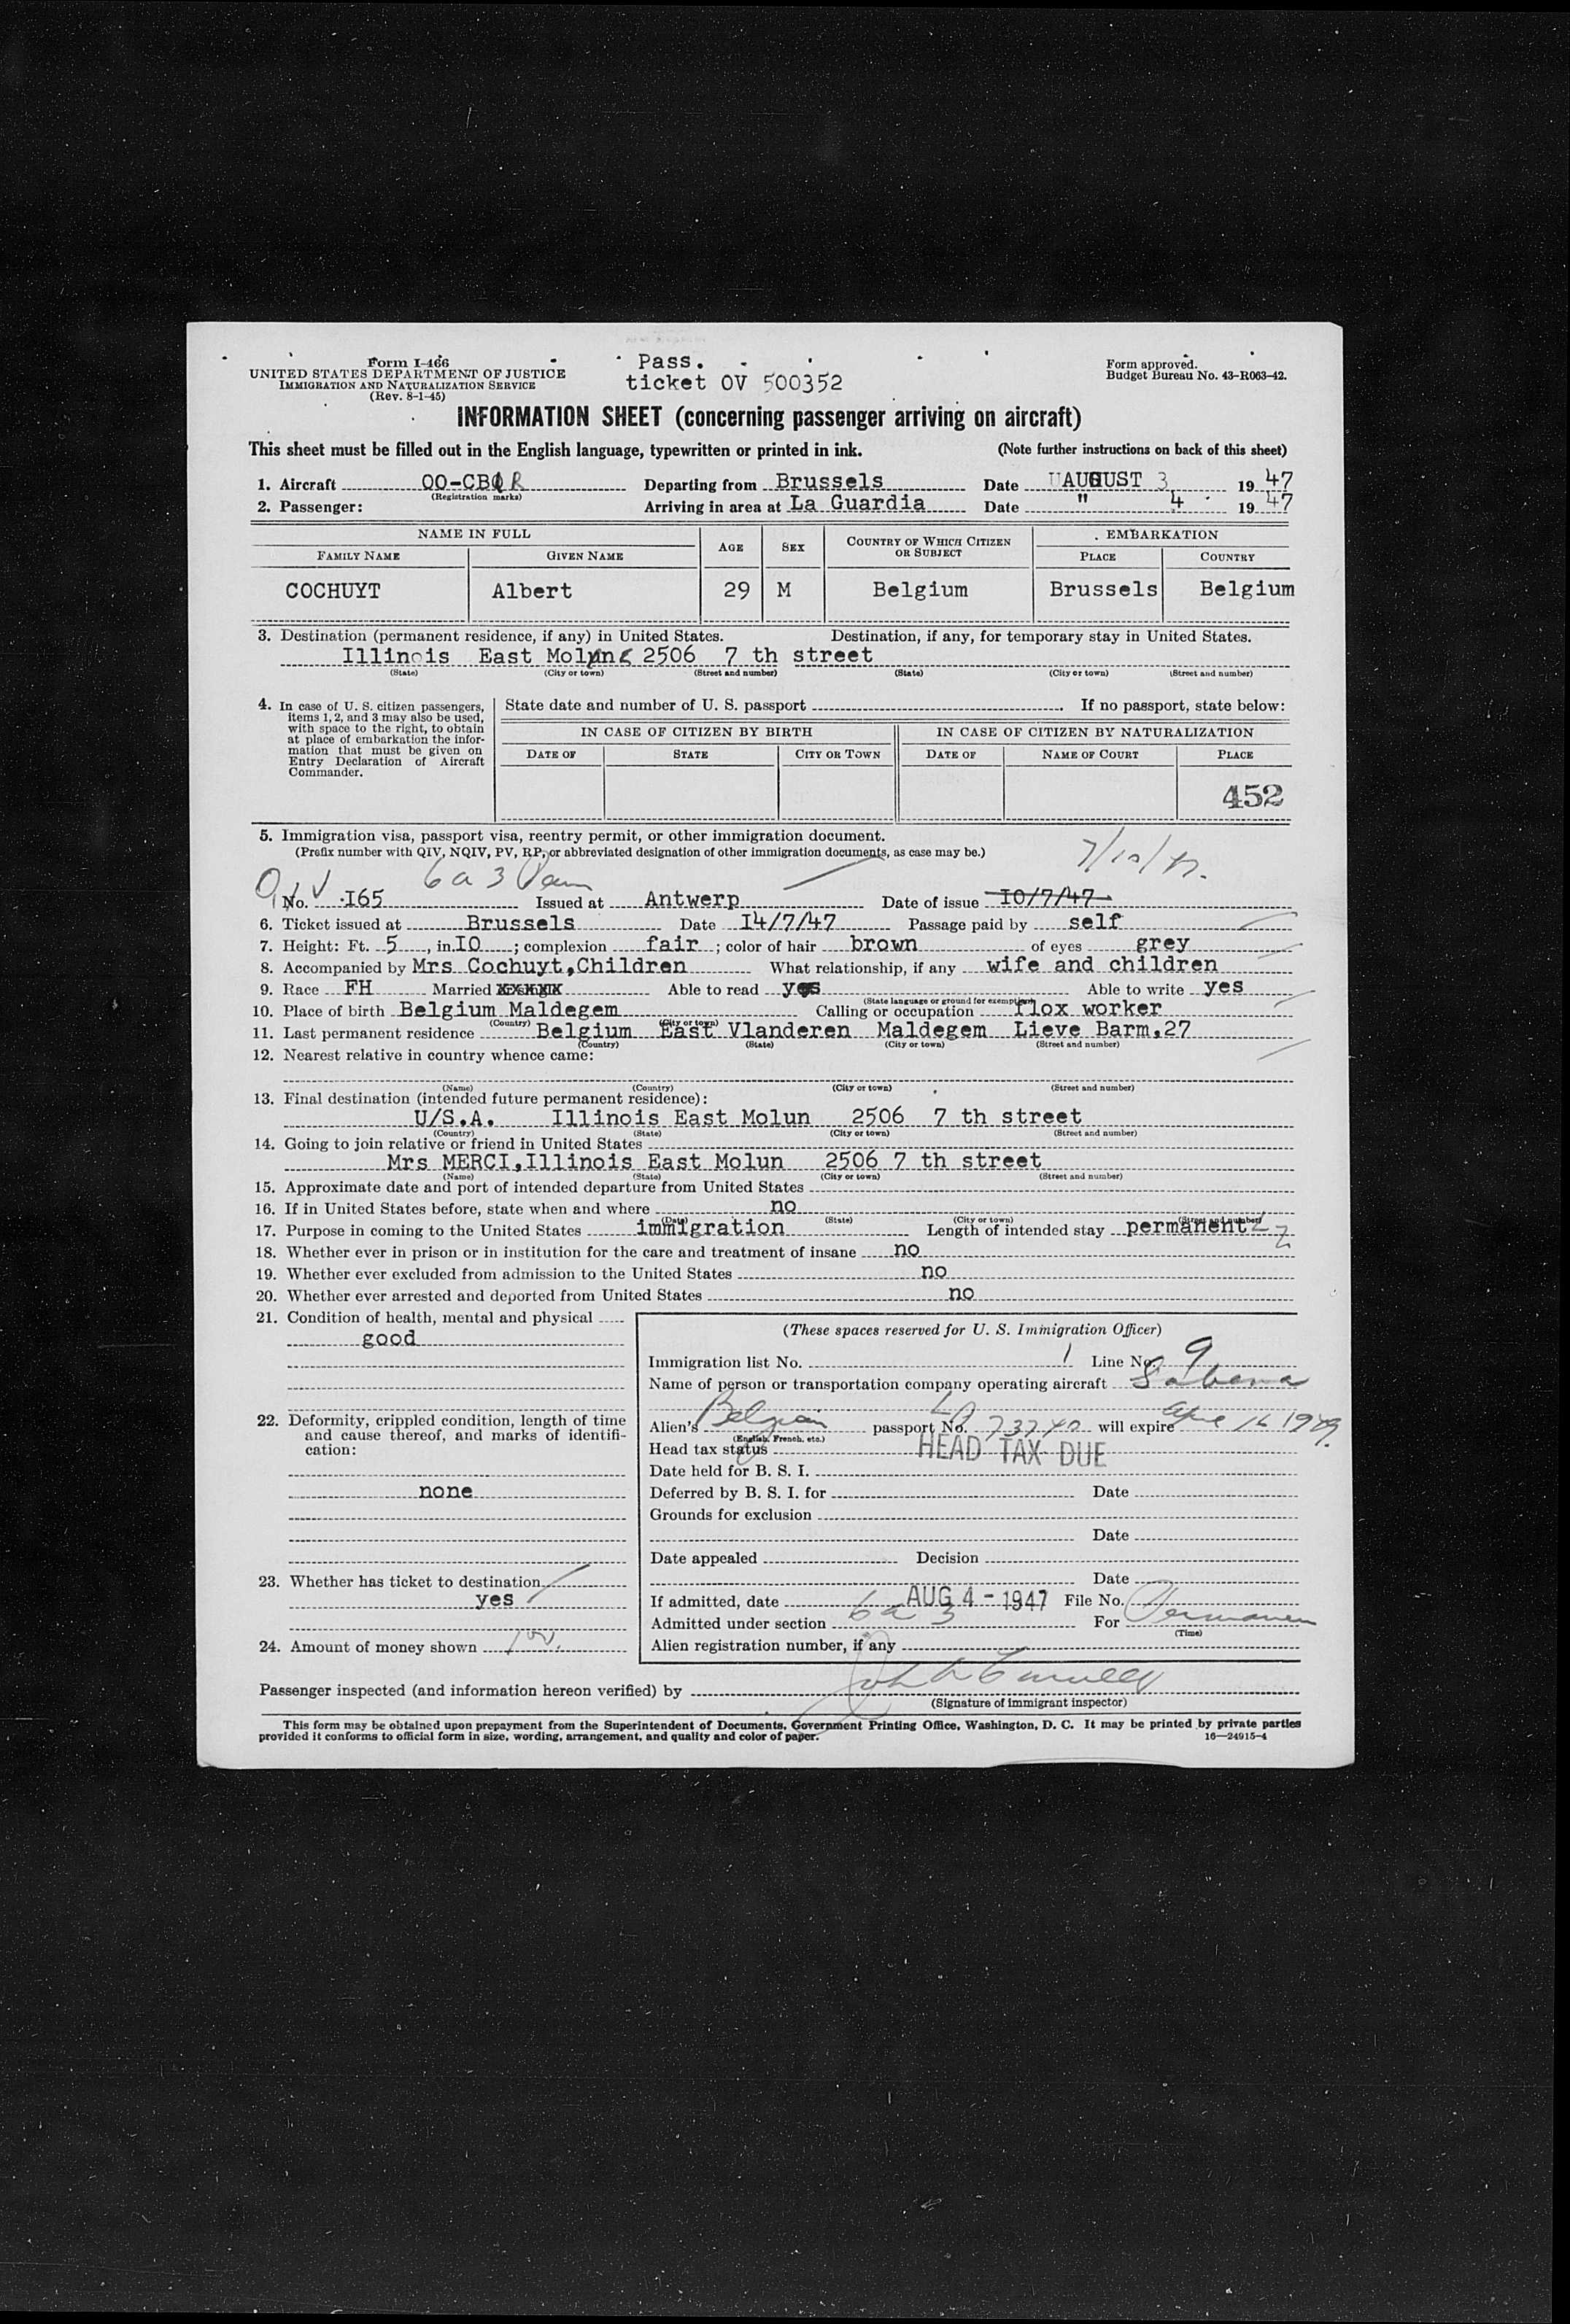 Form I-466
UNITED STATES DEPARTMENT OF JUSTICE
IMMIGRATION AND NATURALIZATION SERVICE
(Rev. 8-1-45)
Pass.
ticket OV 500352
Form approved.
Budget Bureau No. 43-R063-42.
INFORMATION SHEET (concerning passenger arriving on aircraft)
This sheet must be filled out in the English language, typewritten or printed in ink. (Note further instructions on back of this sheet)
1. Aircraft OO-CBR Departing from Brussels Date AUGUST 3 1947
(Registration marks)
2. Passenger: Arriving in area at La Guardia Date " 4 1947
NAME IN FULL AGE SEX COUNTRY OF WHICH CITIZEN OR SUBJECT EMBARKATION
FAMILY NAME GIVEN NAME PLACE COUNTRY
COCHUYT Albert 29 M Belgium Brussels Belgium
3. Destination (permanent residence, if any) in United States. Destination, if any, for temporary stay in United States.
Illinois East Moline 2506 7 th street
(State) (City or town) (Street and number) (State) (City or town) (Street and number)
4. In case of U. S. citizen passengers, items 1, 2, and 3 may also be used, with space to the right, to obtain at place of embarkation the information that must be given on Entry Declaration of Aircraft Commander.
State date and number of U. S. passport If no passport, state below:
IN CASE OF CITIZEN BY BIRTH IN CASE OF CITIZEN BY NATURALIZATION
DATE OF STATE CITY OR TOWN DATE OF NAME OF COURT PLACE
452
5. Immigration visa, passport visa, reentry permit, or other immigration document.
(Prefix number with QIV, NQIV, PV, RP, or abbreviated designation of other immigration documents, as case may be.)
7/10/47.
QIV 6 a 3 Perm
No. I65 Issued at Antwerp Date of issue I0/7/47
6. Ticket issued at Brussels Date I4/7/47 Passage paid by self
7. Height: Ft. 5, in. I0; complexion fair; color of hair brown of eyes grey
8. Accompanied by Mrs Cochuyt,Children What relationship, if any wife and children
9. Race FH Married xxxxxx Able to read yes Able to write yes
(State language or ground for exemption)
10. Place of birth Belgium Maldegem Calling or occupation flox worker
(Country) (City or town)
11. Last permanent residence Belgium East Vlanderen Maldegem Lieve Barm,27
(Country) (State) (City or town) (Street and number)
12. Nearest relative in country whence came:
(Name) (Country) (City or town) (Street and number)
13. Final destination (intended future permanent residence):
U/S.A. Illinois East Molun 2506 7 th street
(Country) (State) (City or town) (Street and number)
14. Going to join relative or friend in United States
Mrs MERCI,Illinois East Molun 2506 7 th street
(Name) (State) (City or town) (Street and number)
15. Approximate date and port of intended departure from United States
16. If in United States before, state when and where no
(Date) (State) (City or town) (Street and number)
17. Purpose in coming to the United States immigration Length of intended stay permanent
18. Whether ever in prison or in institution for the care and treatment of insane no
19. Whether ever excluded from admission to the United States no
20. Whether ever arrested and deported from United States no
21. Condition of health, mental and physical
good
22. Deformity, crippled condition, length of time and cause thereof, and marks of identification:
none
23. Whether has ticket to destination
yes
24. Amount of money shown 100.
(These spaces reserved for U. S. Immigration Officer)
Immigration list No. 1 Line No. 9
Name of person or transportation company operating aircraft Sabena
Alien's Belgian passport No. 73740 will expire April 16 1949.
(English, French, etc.)
Head tax status HEAD TAX DUE
Date held for B. S. I.
Deferred by B. S. I. for Date
Grounds for exclusion
Date
Date appealed Decision
Date
If admitted, date AUG 4 - 1947 File No.
Admitted under section 6 a 3 For Permanen
(Time)
Alien registration number, if any
Passenger inspected (and information hereon verified) by
(Signature of immigrant inspector)
This form may be obtained upon prepayment from the Superintendent of Documents, Government Printing Office, Washington, D. C. It may be printed by private parties
provided it conforms to official form in size, wording, arrangement, and quality and color of paper. 16—24915-4